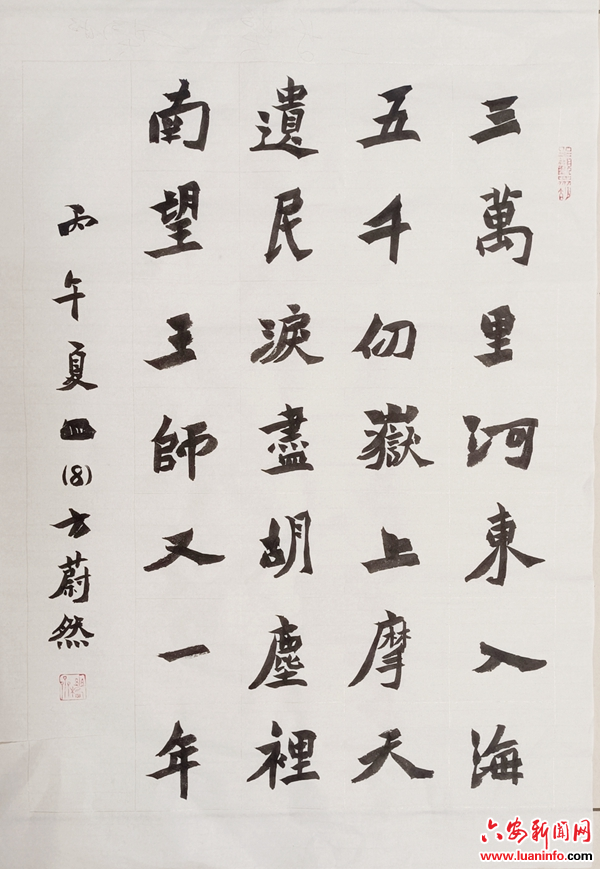 三萬里河東入海
五千仞嶽上摩天
遺民淚盡胡塵裡
南望王師又一年
丙午夏四(8)方蔚然
六安新闻网
www.luaninfo.com